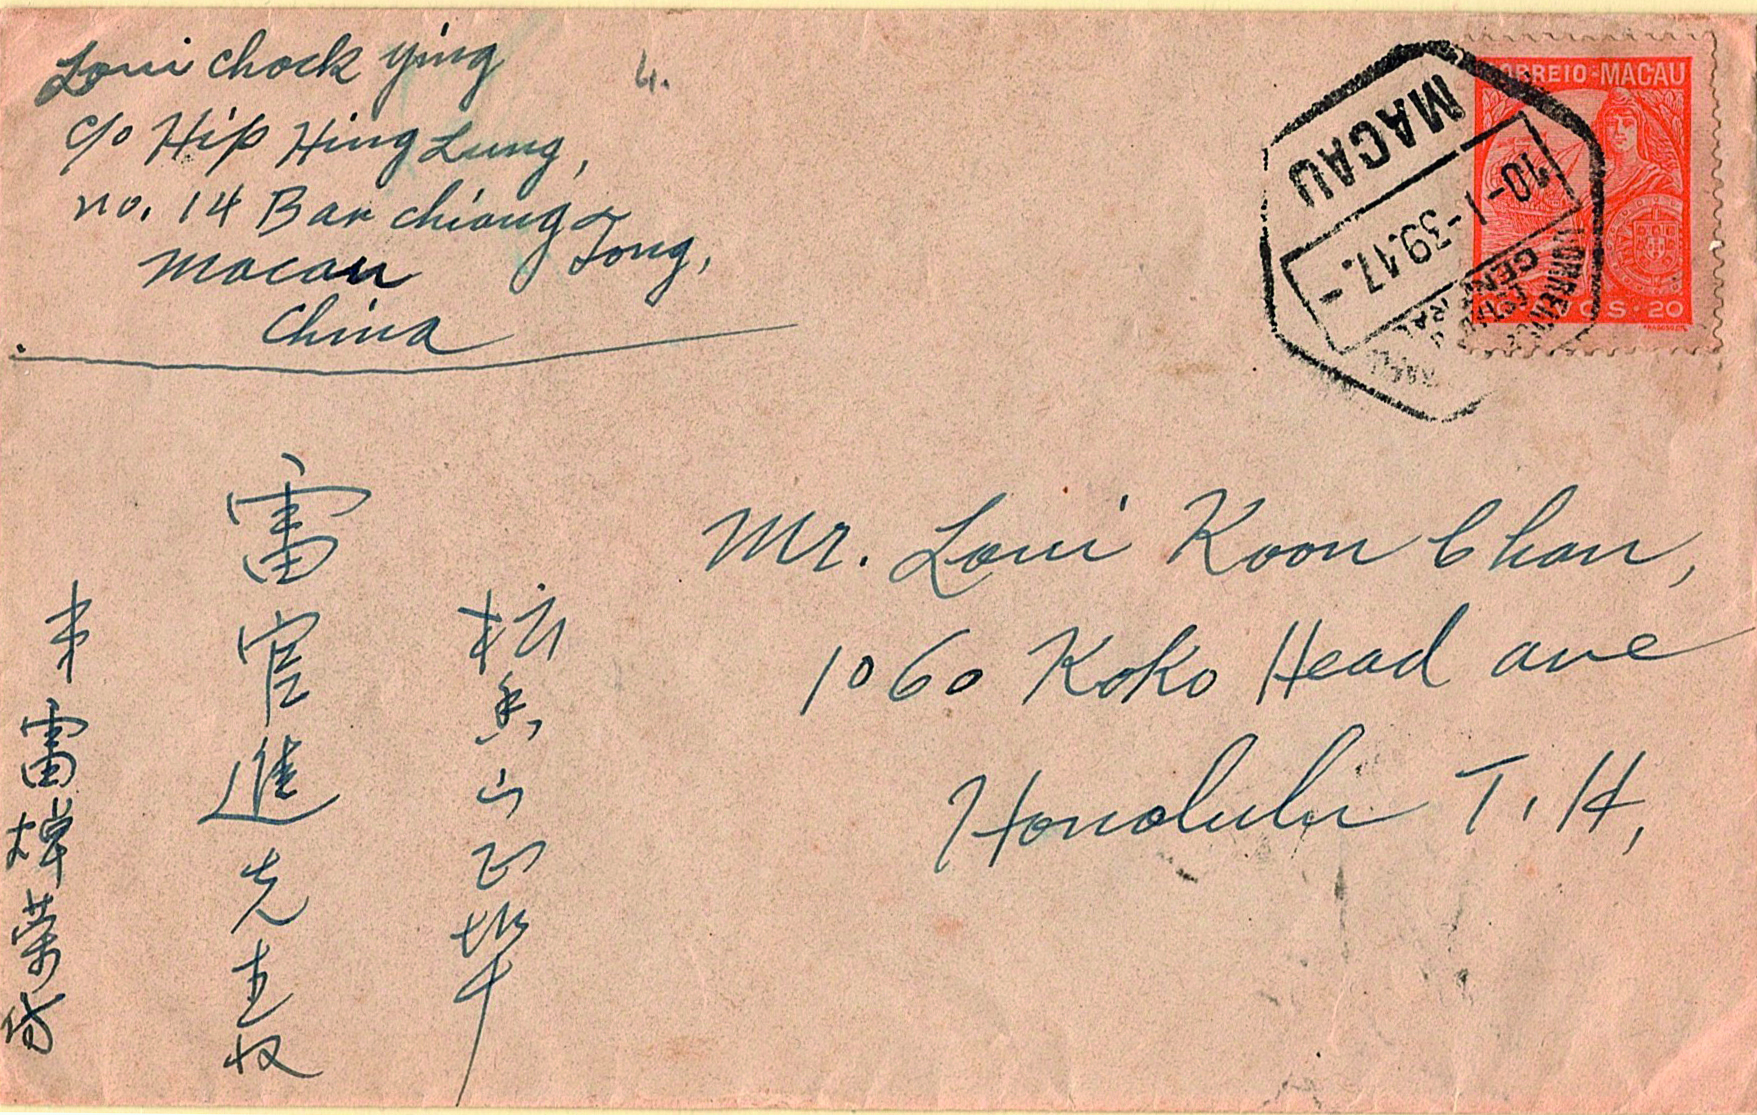 Loui chock ying
c/o Hip Hing Lung,
no. 14 Bar chiong
Tong,
Macau
China
4.
CORREIO-MACAU
20
MACAU
10-1-39.17.-
CORREIOS
CENTRAL
Mr. Loui Koon Chan,
1060 Koko Head ave
Honolulu T.H.
檀香山正埠
雷官進先生收
雷焯榮